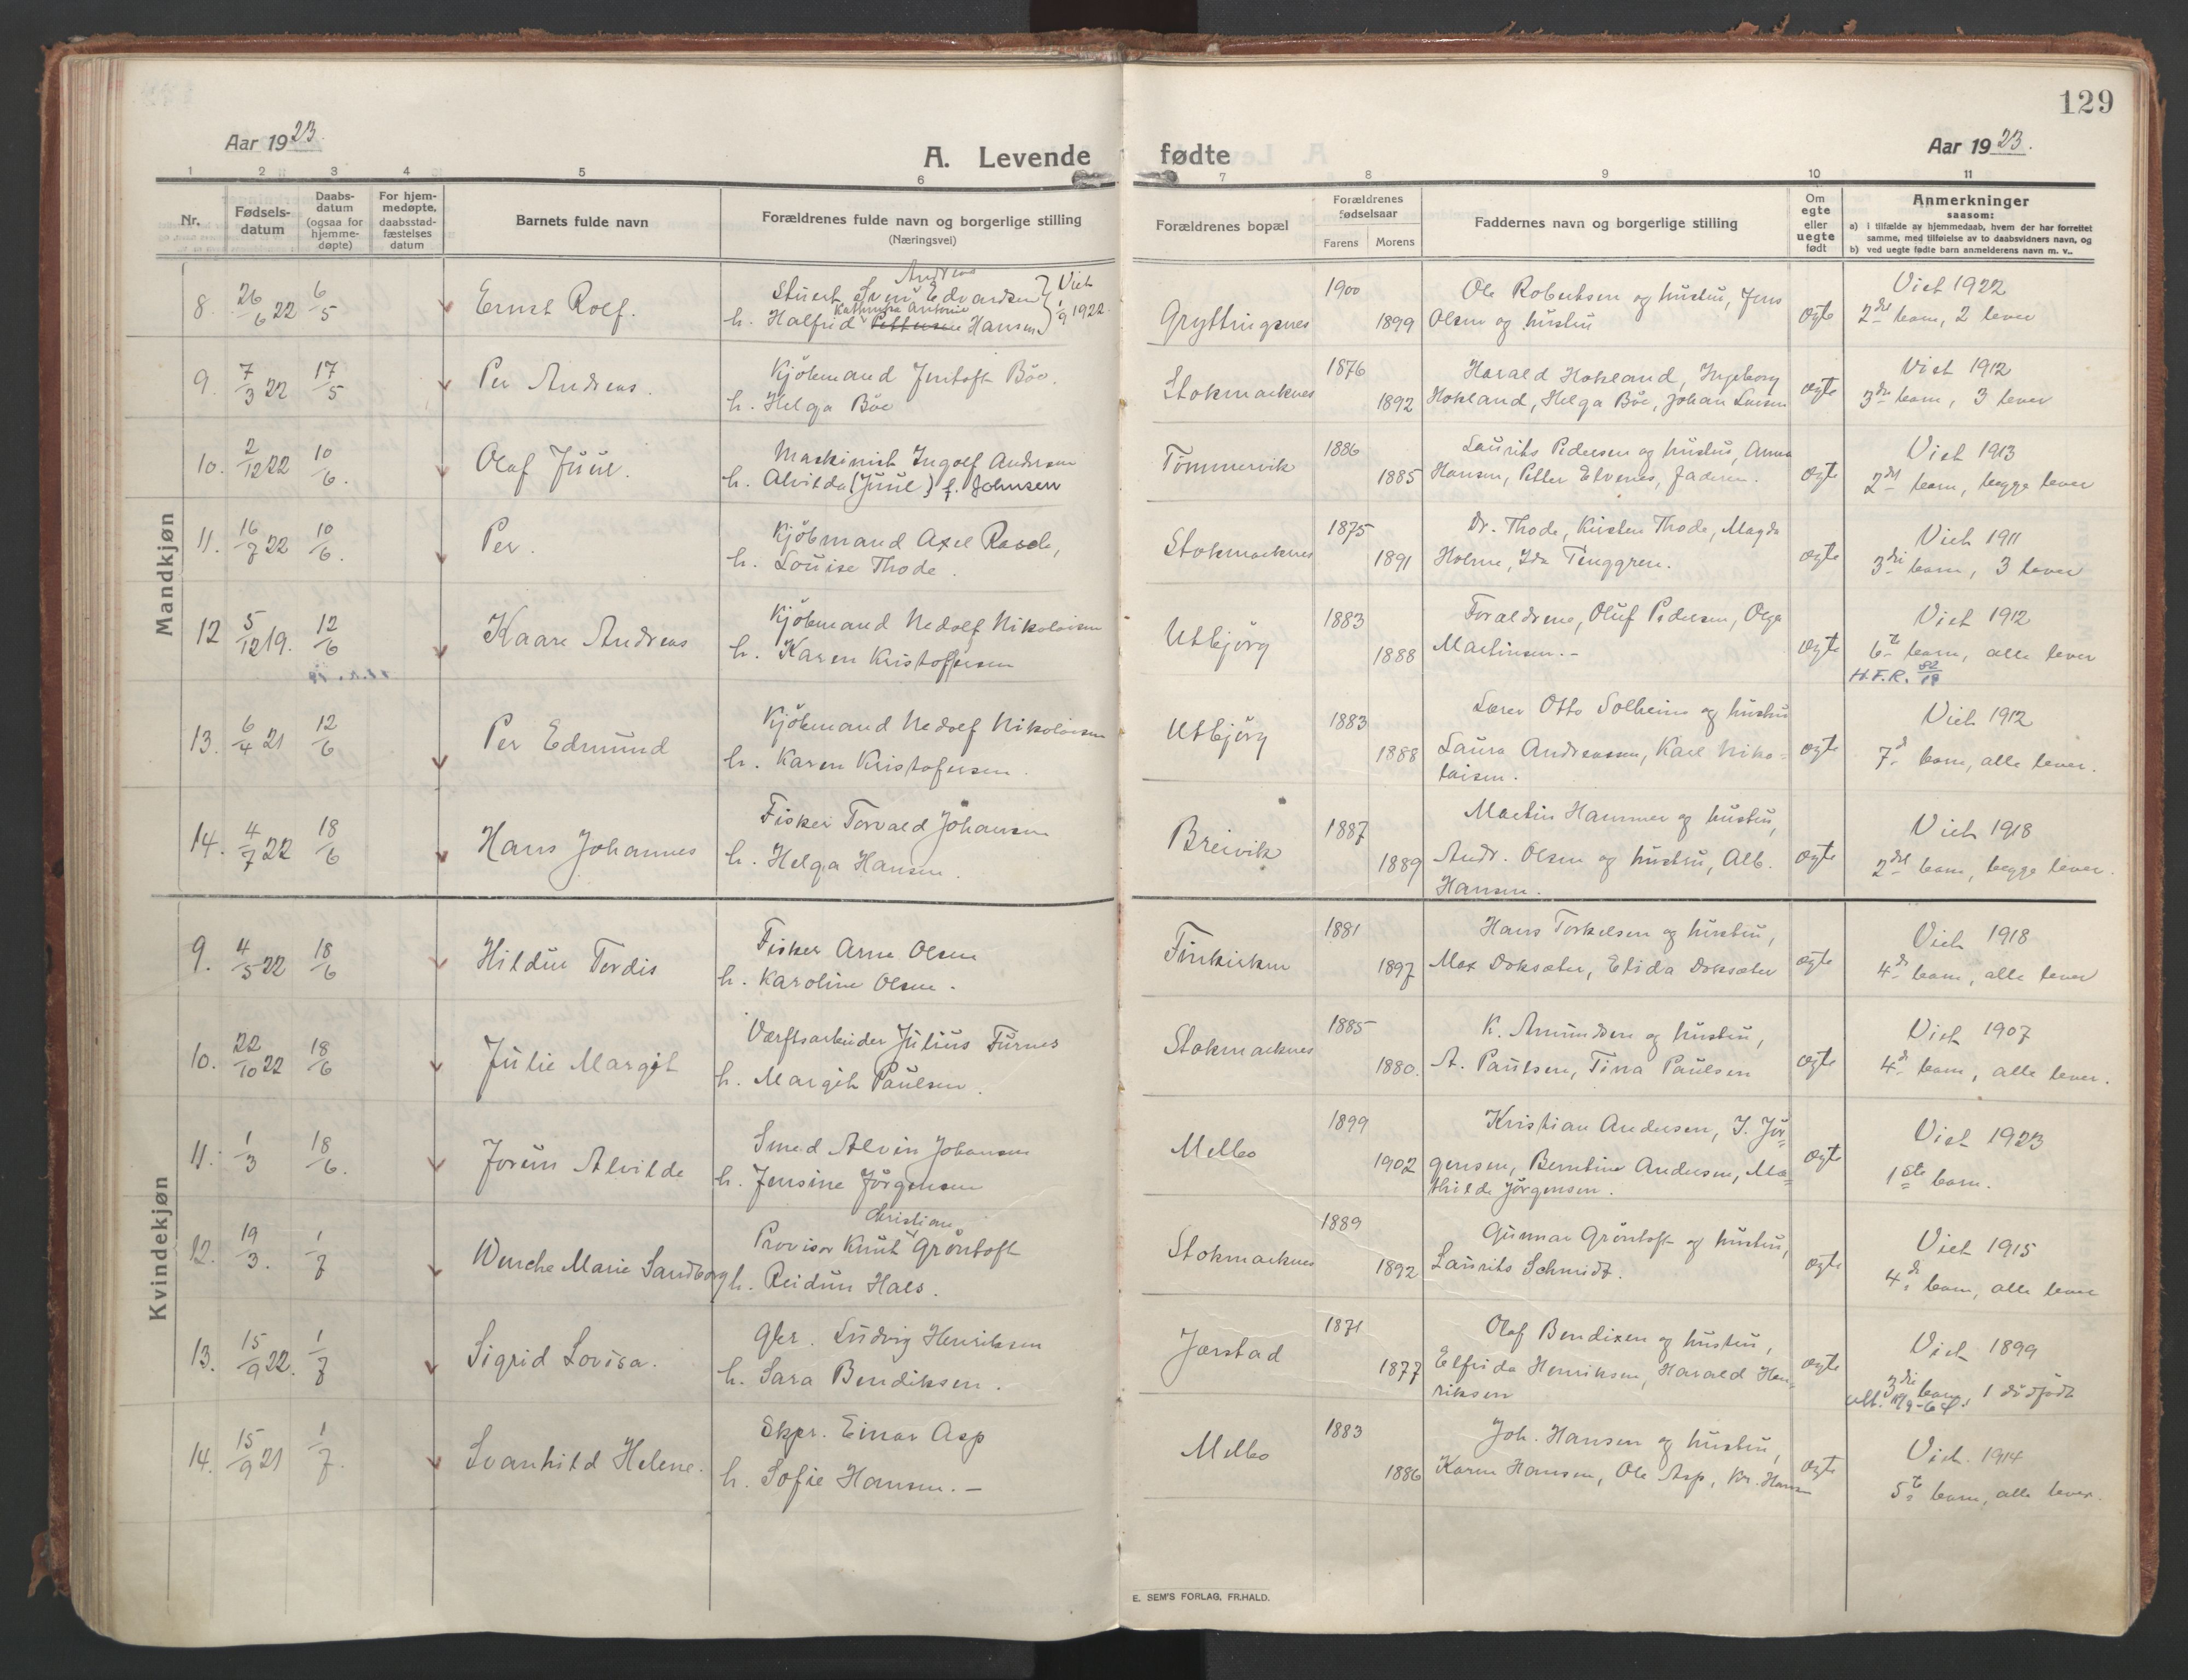 129
Aar 1923.
A. Levende fødte
Aar 1923.
1 2 3 4 5 6 7 8 9 10 11
Nr.
Fødsels-
datum
Daabs-
datum
(ogsaa for
hjemme-
døpte)
For hjem-
medøpte,
daabsstad-
fæstelses
datum
Barnets fulde navn
Forældrenes fulde navn og borgerlige stilling
(Næringsvei)
Forældrenes bopæl
Forældrenes
fødselsaar
Farens Morens
Faddernes navn og borgerlige stilling
Om
egte
eller
uegte
født
Anmerkninger
saasom:
a) i tilfælde av hjemmedaab, hvem der har forrettet
samme, med tilføielse av to daabsvidners navn, og
b) ved uegte fødte barn anmelderens navn m. v..
Mandkjøn
8. 26/6 22 6/5 Ernst Rolf.
Andreas
Stuert Edvardsen } Viet
Antonie
h. Halfrid Hansen 1/9 1922.
Gryttingsnes 1900 1899
Ole Robertsen og hustru, Jens
Olsen og hustru
egte
Viet 1922
2det barn, 2 lever
9. 7/3 22 17/5 Per Andreas.
Kjöbmand Jentoft Böe.
h. Helga Böe
Stokmarknes 1876 1892
Harald Hokland, Ingeborg
Hokland, Helga Böe, Johan Larsen
egte
Viet 1912
3die barn, 3 lever
10. 2/12 22 10/6. Olaf Juul.
Maskinist Ingolf Andersen
h. Alvilda (Juul) f. Johnsen
Tömmervik 1886 1885
Laurits Pedersen og hustru, Anna
Hansen, Petter Elvenes, faderen.
egte
Viet 1913
2det barn, begge lever
11. 16/7 22 10/6. Per.
Kjöbmand Axel Rasch,
h. Louise Thode.
Stokmarknes 1875 1891
Dr. Thode, Kirsten Thode, Magda
Holme, Ida Tenggren.
egte
Viet 1911
3die barn, 3 lever
12 5/12 19. 12/6 Kaare Andreas
Kjöbmand Nedolf Nikolaisen
h. Karen Kristofersen
Utbjörg 1883 1888
Foraldrene, Oluf Pedersen, Olga
Martinsen.-
egte
Viet 1912
6te barn, alle lever
H.F.R. 82/19
13. 6/4 21 12/6 Per Edmund
Kjöbmand Nedolf Nikolaisen
h. Karen Kristofersen.
Utbjörg 1883 1888
Lærer Otto Solheim og hustru
Laura Andreassen, Karl Niko-
laisen.
egte
Viet 1912
7d. barn, alle lever.
14. 4/7 22 18/6 Hans Johannes
Fisker Torvald Johansen
h. Helga Hansen.
Breivik 1887 1889
Martin Hammer og hustru,
Andr. Olsen og hustru, Alb.
Hansen.
egte
Viet 1918
2det barn, begge lever.
Kvindekjøn
9. 4/5 22 18/6 Hildur Tordis
Fisker Arne Olsen
h. Karoline Olsen.
1881 1897
Hans Torkelsen og hustru,
Max Doksæter, Elida Doksæter
egte
Viet 1918
4d. barn, alle lever
10. 22/10 22 18/6 Julie Margit
Værftsarbeider Julius Furnes
h. Margit Paulsen.
Stokmarknes 1885 1880.
K. Amundsen og hustru,
A. Paulsen, Tina Paulsen
egte
Viet 1907
4d. barn, alle lever.
11. 1/3 18/6. Jorun Alvilde
Smed Alvin Johansen
h. Jensine Jörgensen
Melbo 1899 1902
Kristian Andersen, J. Jör-
gensen, Berntine Andersen, Ma-
thilde Jörgensen.
egte
Viet 1923
1ste barn.
12. 19/3. 1/7 Wenche Marie Sandborg
Christian
Provisor Knut Gröntoft
h. Reidun Hals.
Stokmarknes 1889 1892
Gunnar Gröntoft og hustru,
Laurits Schmidt.
egte
Viet 1915
4d. barn, alle lever
13. 15/9 22. 1/7 Sigrid Lovisa.
Gbr. Ludvig Henriksen
h. Sara Bendiksen.
Jorstad 1871 1877
Olaf Bendixen og hustru,
Elfrida Henriksen, Harald Hen-
riksen
egte
Viet 1899
3die barn, 1 dödfödt
14. 15/9 21 1/7. Svanhild Helene.
Skpr. Einar Asp
h. Sofie Hansen.-
Melbo 1883 1886
Joh. Hansen og hustru,
Karen Hansen, Ole Asp, Kr. Hansen
egte
Viet. 1914
5te barn, alle lever.
E. SEM'S FORLAG, FR.HALD.